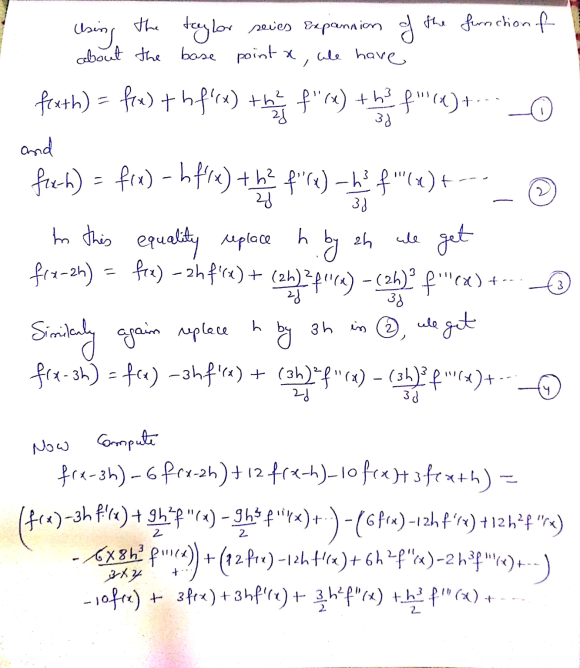 Using the taylor series expansion of the function f
about the base point x, we have
f(x+h) = f(x) + hf'(x) + h²/2! f''(x) + h³/3! f'''(x) + ... — ①
and
f(x-h) = f(x) - hf'(x) + h²/2! f''(x) - h³/3! f'''(x) + --- — ②
In this equality replace h by 2h we get
f(x-2h) = f(x) - 2hf'(x) + (2h)²/2! f''(x) - (2h)³/3! f'''(x) + ... — ③
Similarly again replace h by 3h in ②, we get
f(x-3h) = f(x) - 3hf'(x) + (3h)²/2! f''(x) - (3h)³/3! f'''(x) + --- — ④
Now Compute
f(x-3h) - 6f(x-2h) + 12f(x-h) - 10f(x) + 3f(x+h) =
(f(x) - 3hf'(x) + 9h²/2 f''(x) - 9h³/2 f'''(x) + ..) - (6f(x) - 12hf'(x) + 12h²f''(x)
- 6×8h³/3×2 f'''(x) + ...) + (12f(x) - 12hf'(x) + 6h²f''(x) - 2h³f'''(x) + ---)
- 10f(x) + 3f(x) + 3hf'(x) + 3/2 h²f''(x) + h³/2 f'''(x) + ---